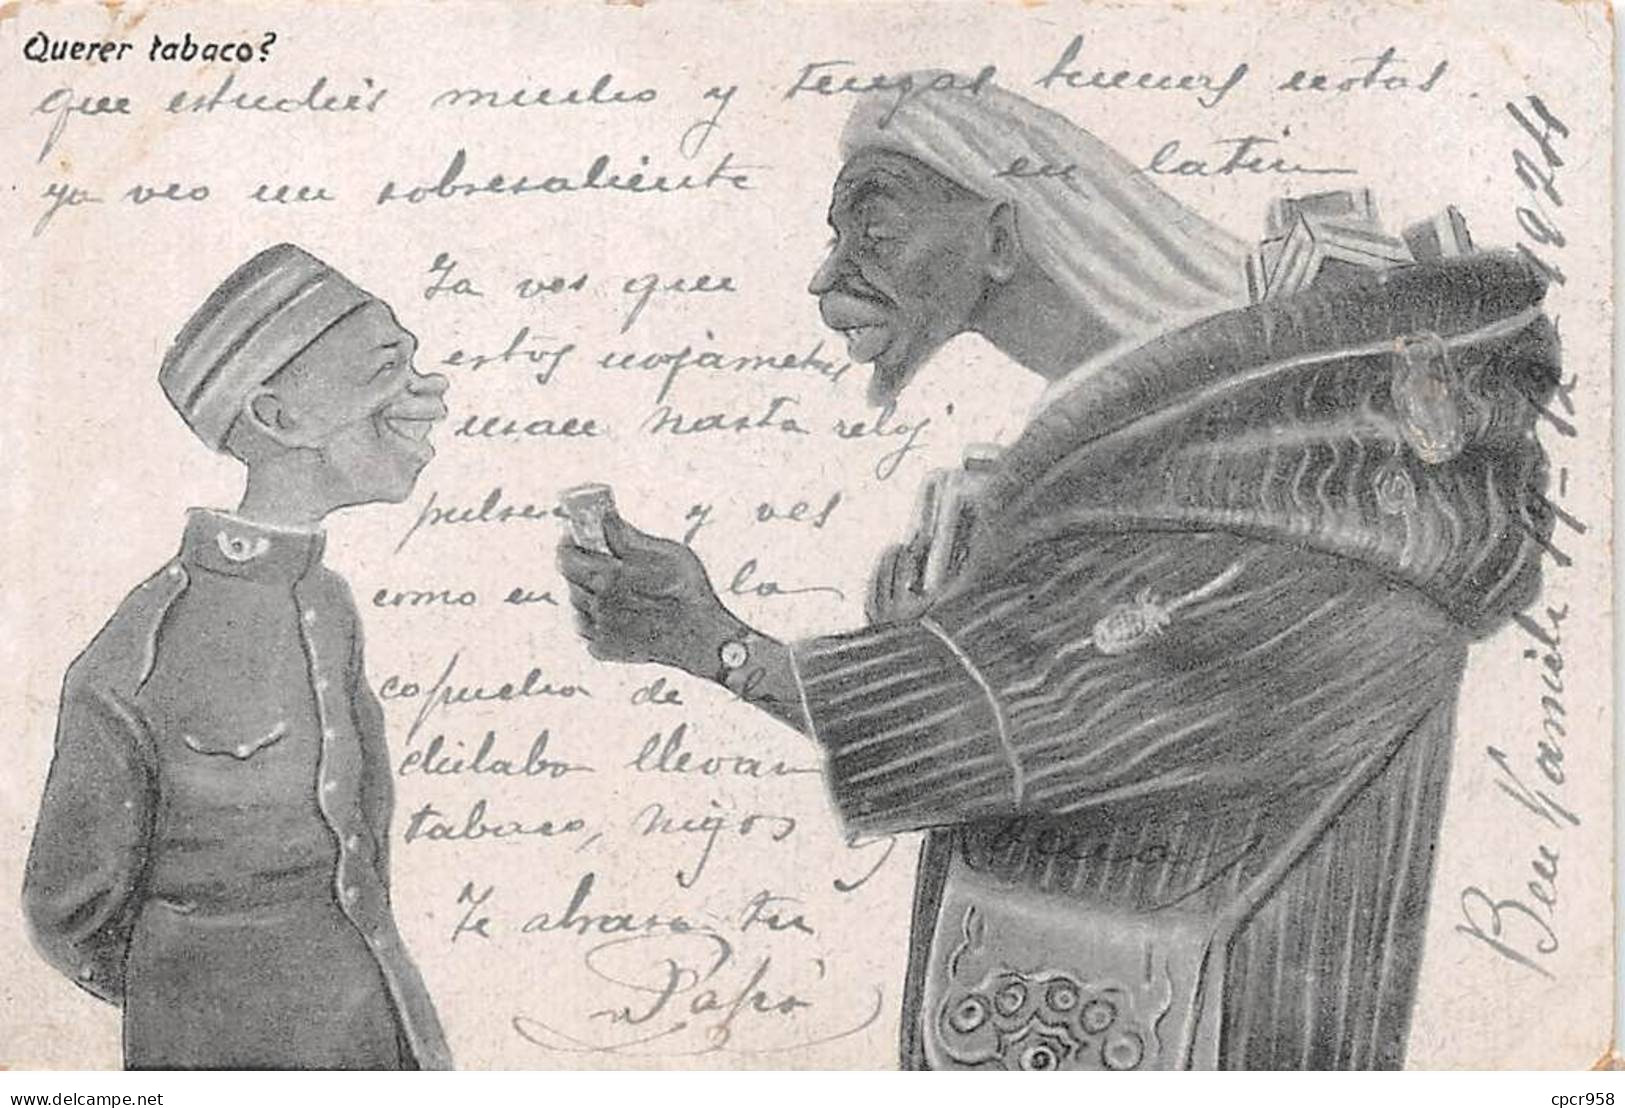 Querer tabaco?
que estudiéis mucho y tengas buenas notas.
ya veo un sobresaliente en latin
Ya ves que
estos mojametes
usan hasta reloj
pulsera y ves
como en la
capucha de la
chilaba llevan
tabaco, higos y
Te abraza tu
Papá
Ben Karrich 19-12-1924
cpcr958